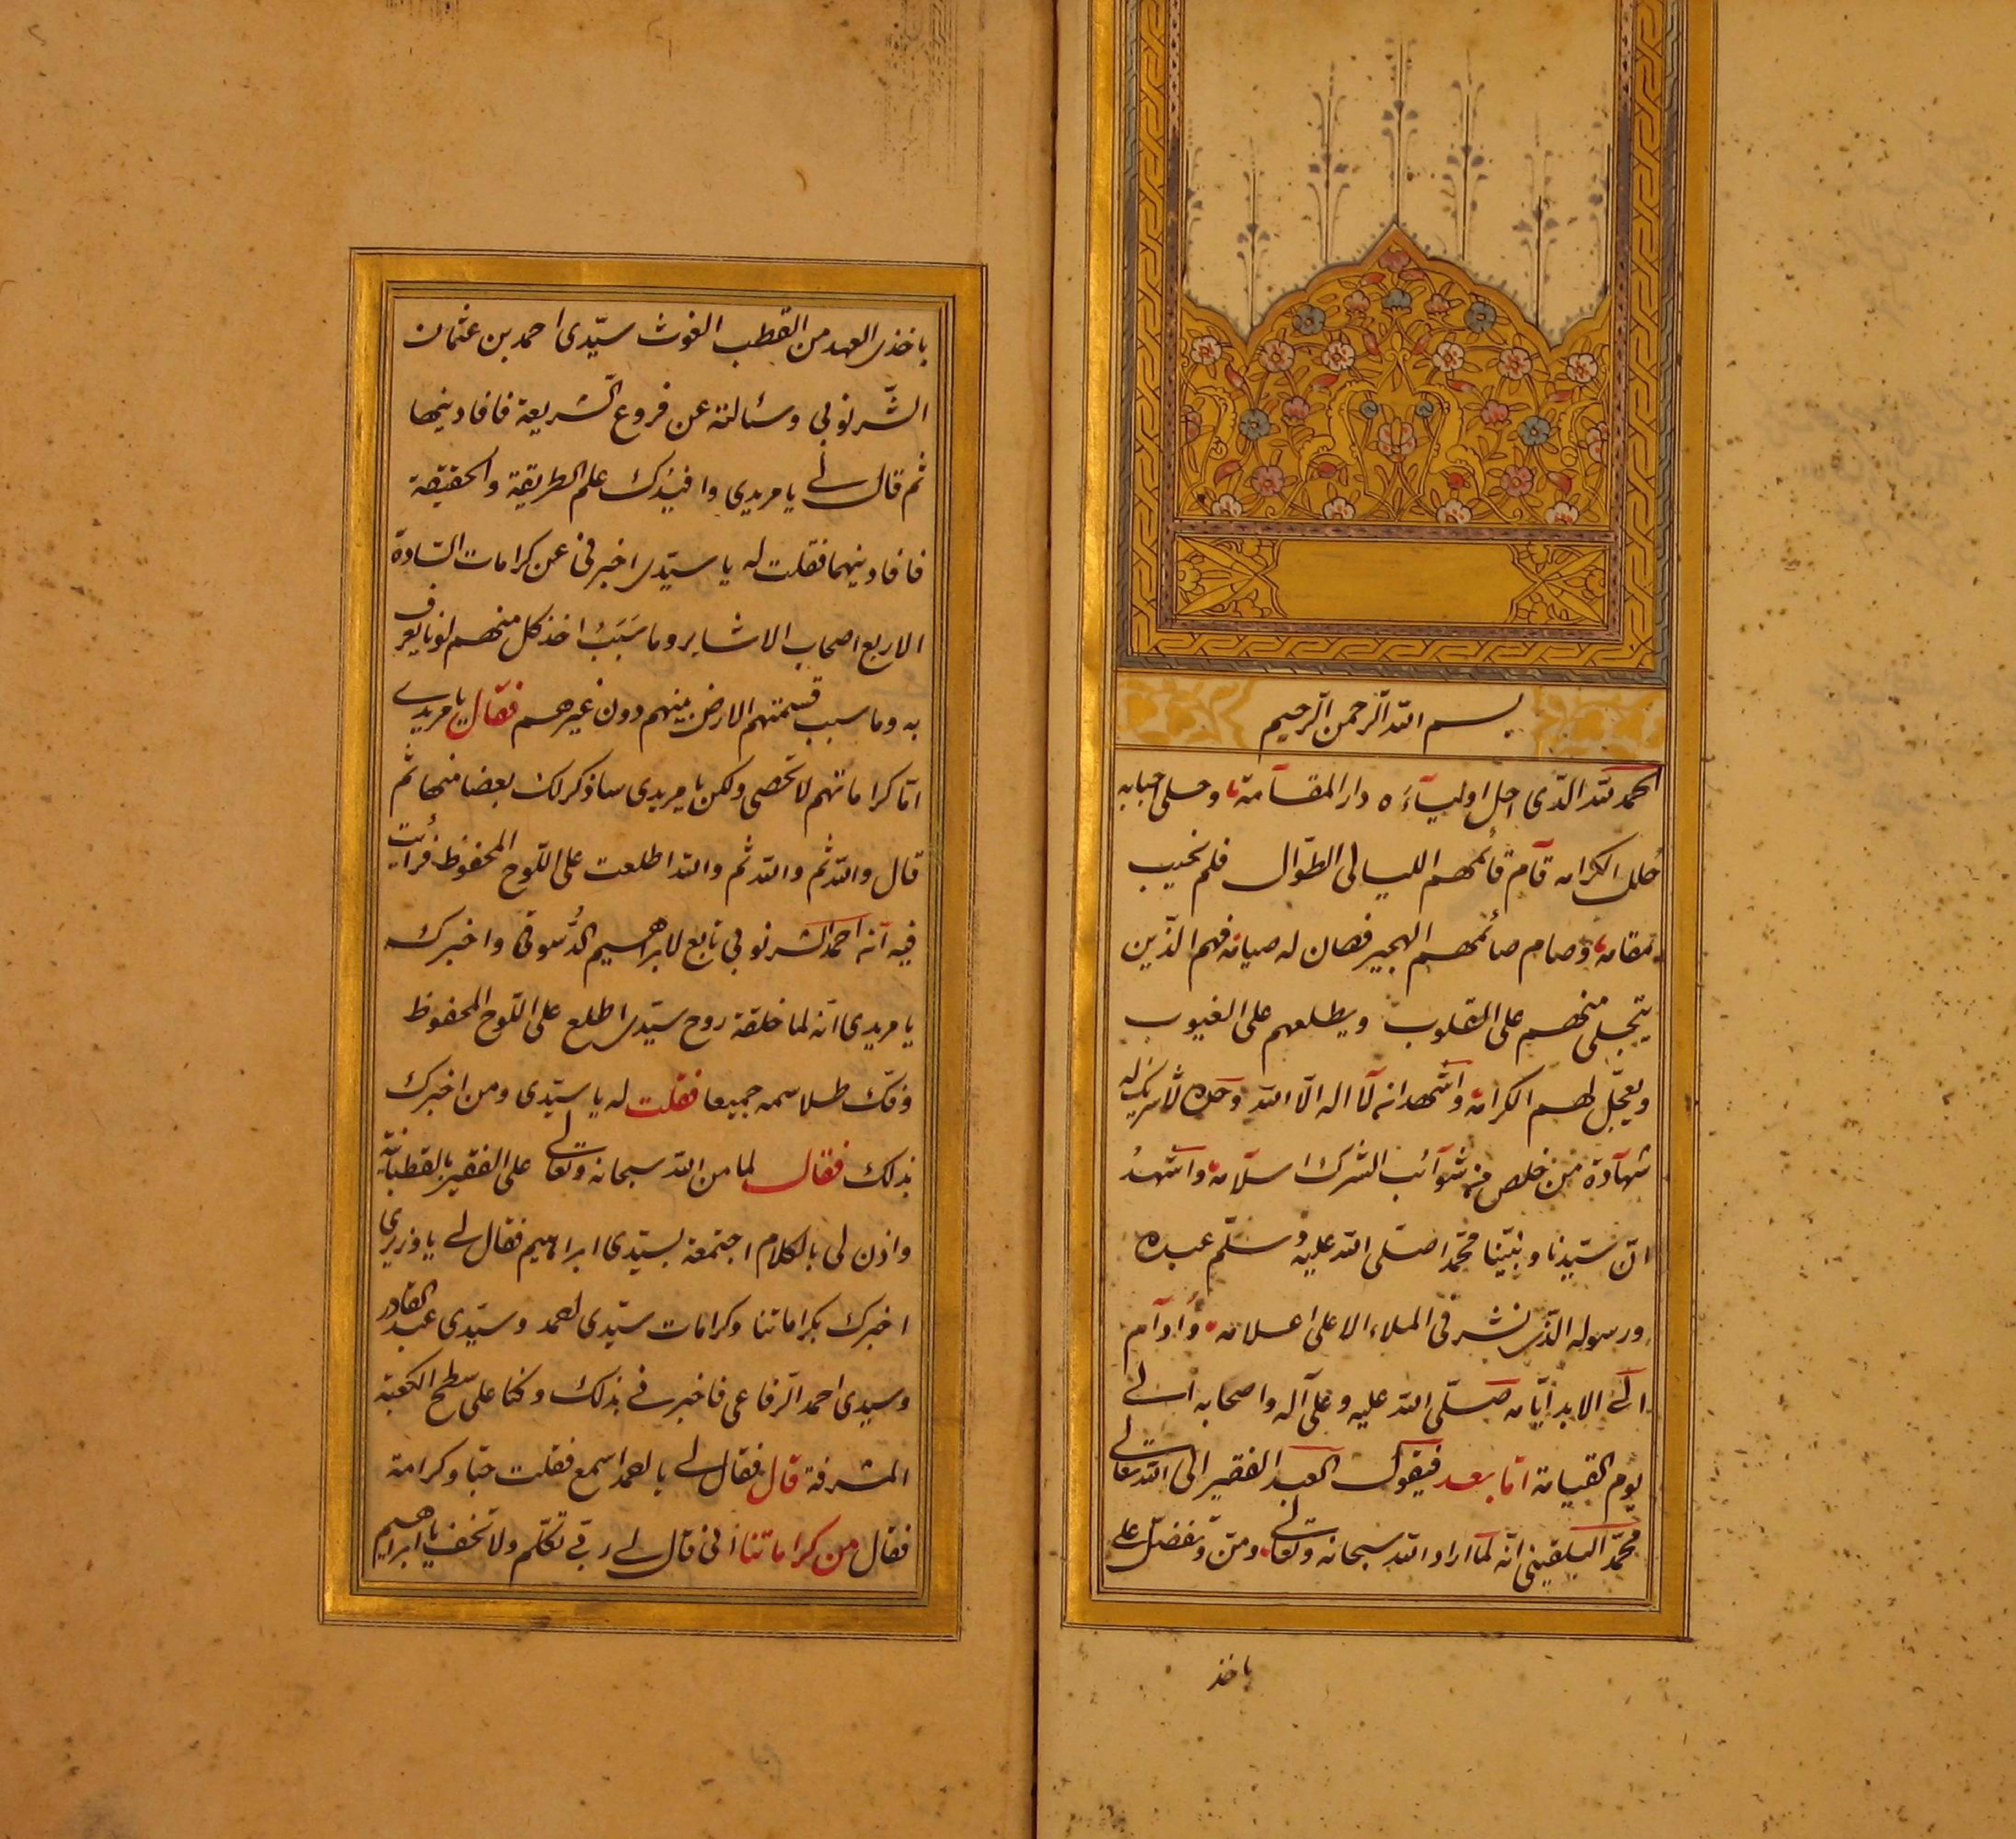 بسم الله الرحمن الرحيم
الحمد لله الذى احل اولياءه دار المقامة وحلى احبابه
حلل الكرامه قام قائمهم الليالى الطوال فلم نخيب
مقامه وصام صائمهم الهجير فصان له صيامه فهم الذين
يتجلى منهم على القلوب ويطلعهم على الغيوب
ويعجل لهم الكرامة واشهد انه لا اله الا الله وحده لا شريك له
شهادة من خلص من شوآئب الشرك اسلامه واشهدُ
ان سيّدنا ونبيّنا محمّدا صلى الله عليه وسلّم عبده
ورسوله الذى نشر فى الملاء الاعلى اعلامه وادام
الى الابد ايّامه صلّى الله عليه وعلى آله واصحابه الى
يوم القيامة امّا بعد فيقول العبد الفقير الى الله تعالى
محمّد البلقينى انّه لمّا اراد الله سبحانه وتعالى ومنّ وتفضّل على
باخذ
باخذى العهد من القطب الغوث سيّدى احمد بن عثمان
الشّرنوبى وسئالته عن فروع الشّريعة فافادينها
ثم قال لى يا مريدى وافيدك علم الطريقة والحقيقة
فافادينهما فقلت له يا سيّدى اخبرنى عن كرامات السّادة
الاربع اصحاب الاشاير وما سَبَبُ اخذ كل منهم لونا يعرف
به وما سبب قسمتهم الارض بينهم دون غيرهم فقال يا مريدى
امّا كراماتهم لا تحصى ولكن يا مريدى ساذكر لك بعضا منها ثم
قال والله ثم والله ثم والله اطلعت على اللّوح المحفوظ فرأيت
فيه انّه احمد الشرنوبى تابع لابراهيم الدُّسوقى واخبرك
يا مريدى انّه لما خلقة روح سيّدى اطلع على اللّوح المحفوظ
وفك طلاسمه جميعا فقلت له يا سيّدى ومن اخبرك
بذلك فقال لما من الله سبحانه وتعالى على الفقير بالقطبانيّة
واذن لى بالكلام اجتمعة بسيّدى ابراهيم فقال لى يا وزيرى
اخبرك بكراماتنا وكرامات سيّدى احمد وسيّدى عبد القادر
وسيدى احمد الرّفاعى فاخبرنى بذلك وكنا على سطح الكعبة
المشرفة قال فقال لى يا احمد اسمع فقلت حبّا وكرامة
فقال من كراماتنا انى قال لى ربّى تكلّم ولا تخف يا ابراهيم